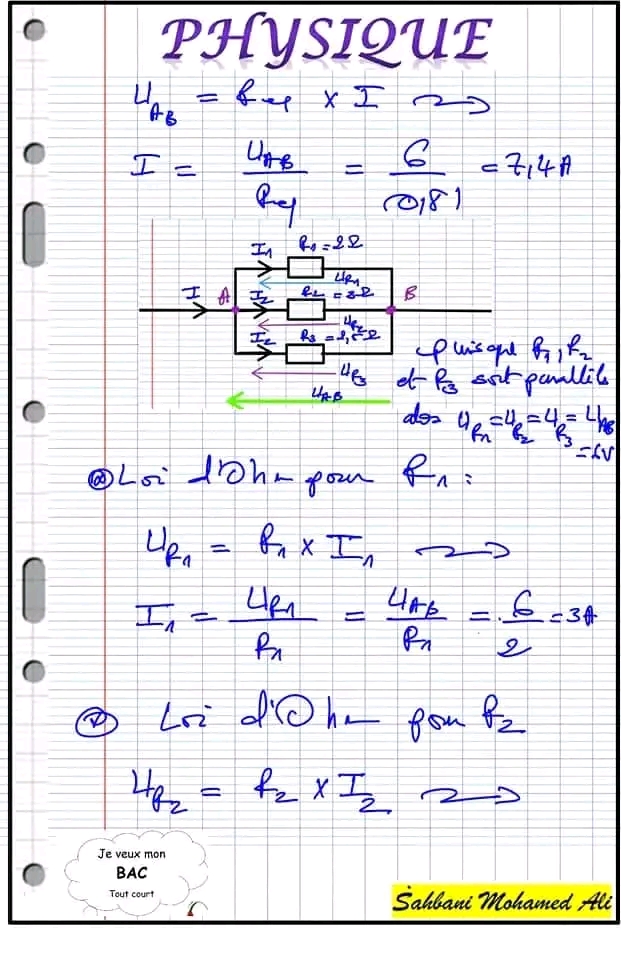 PHYSIQUE
U_AB = Req × I
I = U_AB / Req = 6 / 0,81 = 7,4 A
I1 R1 = 2Ω
U_R1
I A I2 R2 = 3Ω B
U_R2
I2 R3 =
U_R3
U_AB
puisque R1, R2
et R3 sont parallèle
alors U_R1 = U_R2 = U_R3 = U_AB
= 6V
Loi d'Ohm pour R1 :
U_R1 = R1 × I1
I1 = U_R1 / R1 = U_AB / R1 = 6 / 2 = 3A
Loi d'Ohm pour R2
U_R2 = R2 × I2
Je veux mon
BAC
Tout court
Sahbani Mohamed Ali